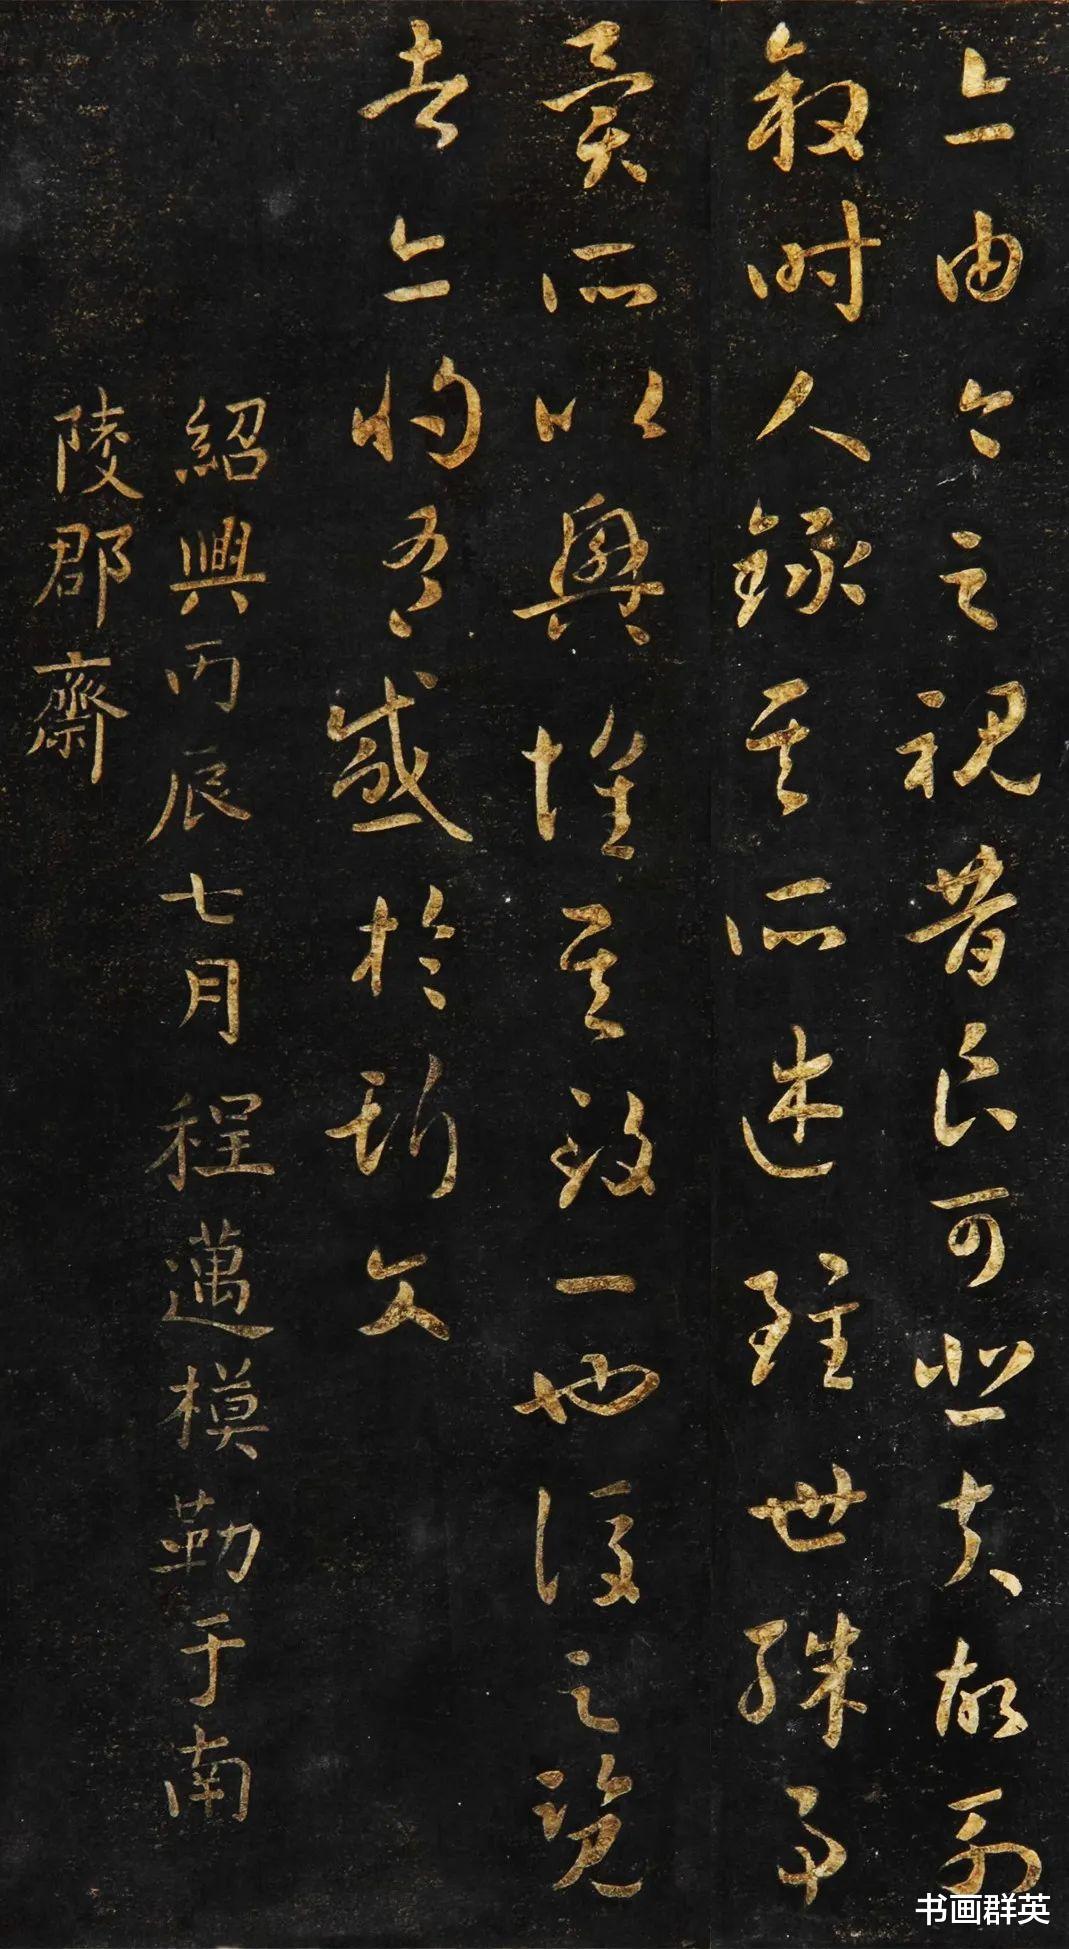 亦由今之視昔良可悲夫故列
敘時人錄其所述雖世殊事
異所以興懷其致一也後之覽
者亦將有感於斯文
紹興丙辰七月程邁模勒于南
陵郡齋
书画群英